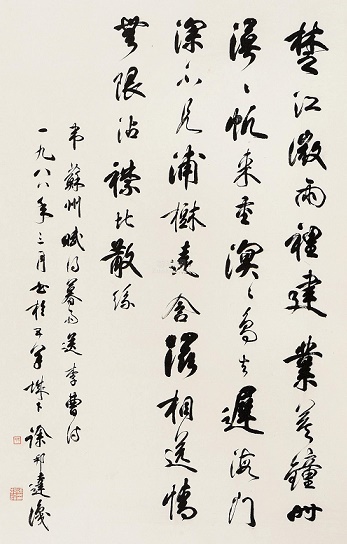 楚江微雨裡建業暮鐘時
漠〻帆来重溟〻鳥去遲海門
深不見浦樹遠含滋相送情
無限沾襟比散絲
韋蘇州賦得暮雨送李曹詩
一九八八年三月書於 徐邦達識